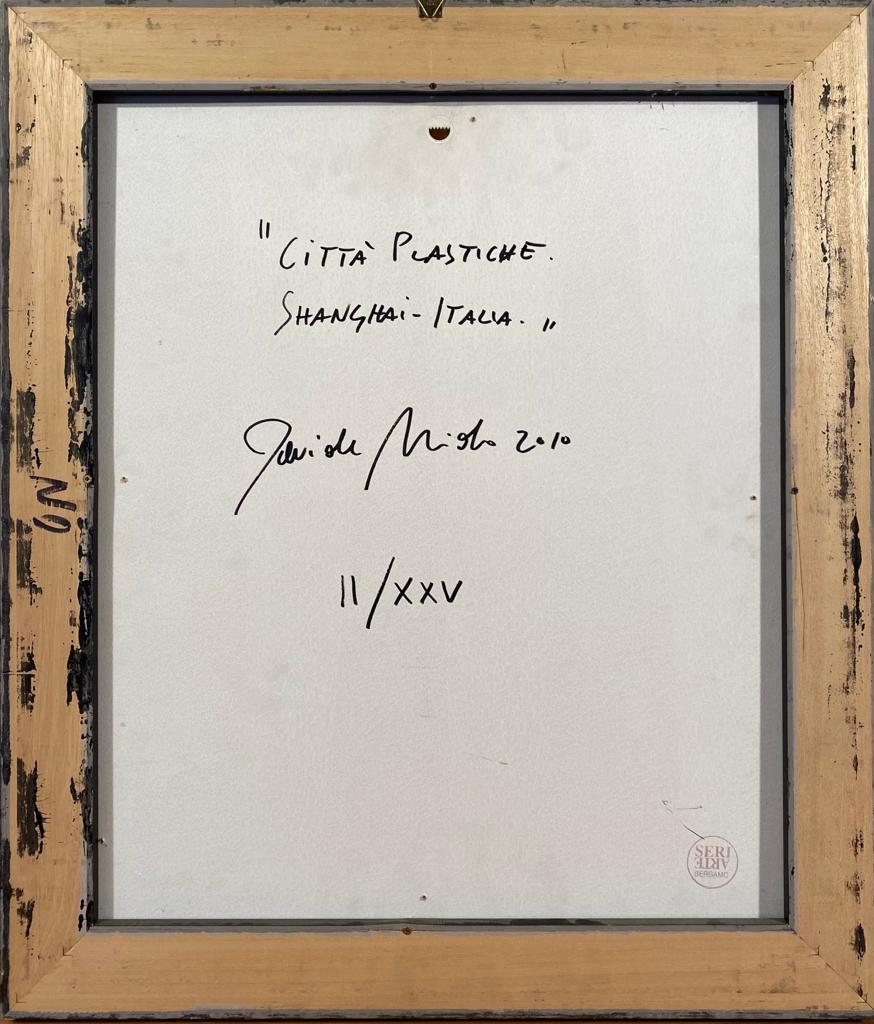 "CITTÀ PLASTICHE.
SHANGHAI-ITALIA."
Davide Nido 2010
II/XXV
NO
SERI
ARTE
BERGAMO